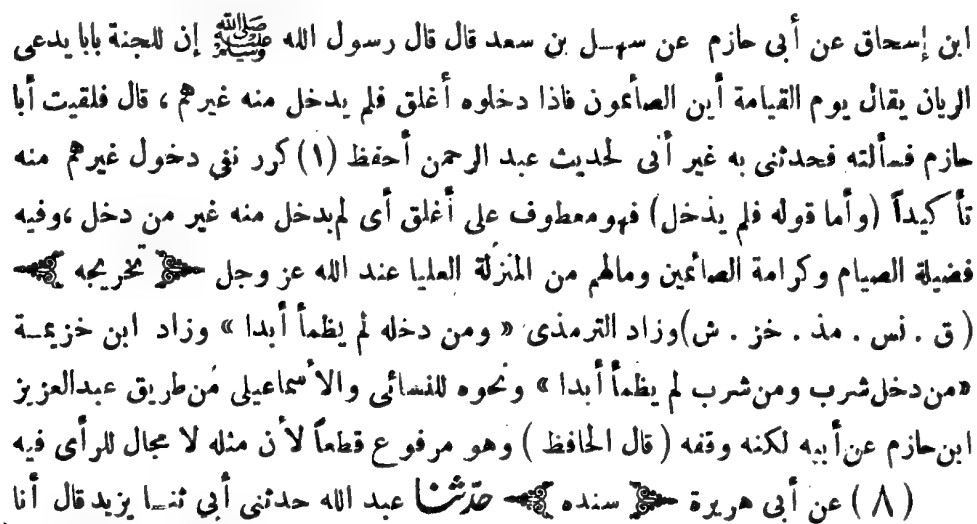 ابن إسحاق عن أبى حازم عن سهل بن سعد قال قال رسول الله ﷺ إن للجنة بابا يدعى
الريان يقال يوم القيامة أين الصائمون فاذا دخلوه أغلق فلم يدخل منه غيرهم ، قال فلقيت أبا
حازم فسألته فحدثنى به غير أنى لحديث عبد الرحمن أحفظ (١) كرر نفي دخول غيرهم منه
تأكيداً (وأما قوله فلم يدخل) فهو معطوف على أغلق أى لم يدخل منه غير من دخل ،وفيه
فضيلة الصيام وكرامة الصائمين ومالهم من المنزلة العليا عند الله عز وجل ﴿ تخريجه ﴾
( ق . نس . مذ . خز . ش)وزاد الترمذى « ومن دخله لم يظمأ أبدا » وزاد ابن خزيمة
«من دخل شرب ومن شرب لم يظمأ أبدا » ونحوه للنسائى والأسماعيلى من طريق عبدالعزيز
ابن حازم عن أبيه لكنه وقفه ( قال الحافظ ) وهو مرفوع قطعاً لأن مثله لا مجال للرأى فيه
(٨) عن أبى هريرة ﴿ سنده ﴾ حدثنا عبد الله حدثنى أبي ثنا يزيد قال أنا